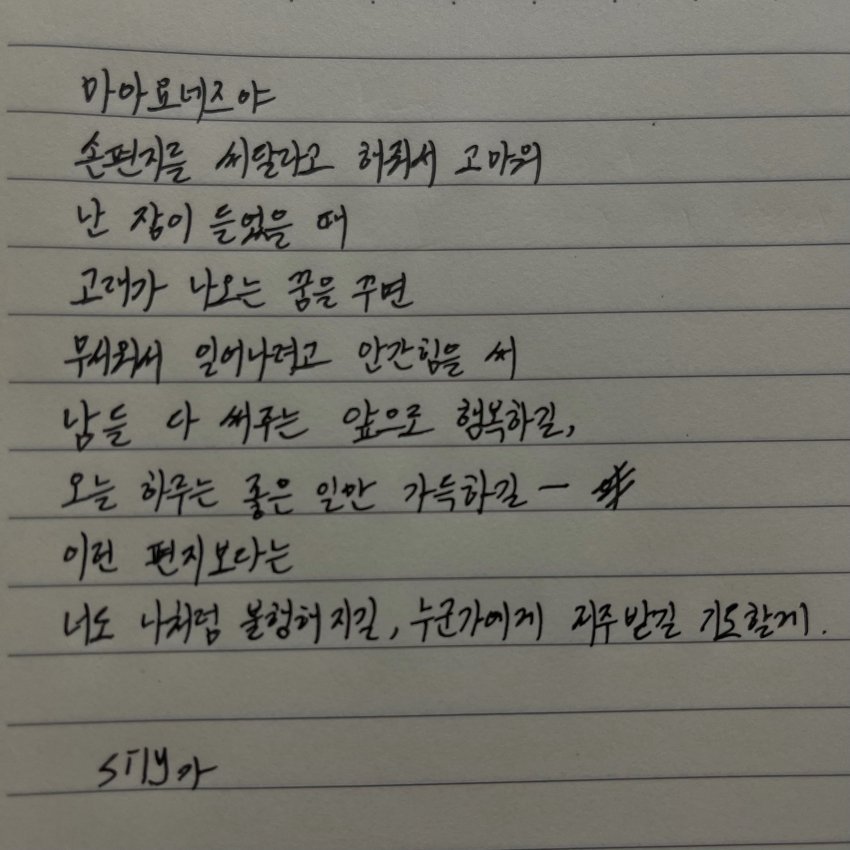 마아요네즈야
손편지를 써달라고 해줘서 고마워
난 잠이 들었을 때
고래가 나오는 꿈을 꾸면
무서워서 일어나려고 안간힘을 써
남들 다 써주는 앞으로 행복하길,
오늘 하루는 좋은 일만 가득하길 —
이런 편지보다는
너도 나처럼 불행해지길, 누군가에게 저주받길 기도할게.